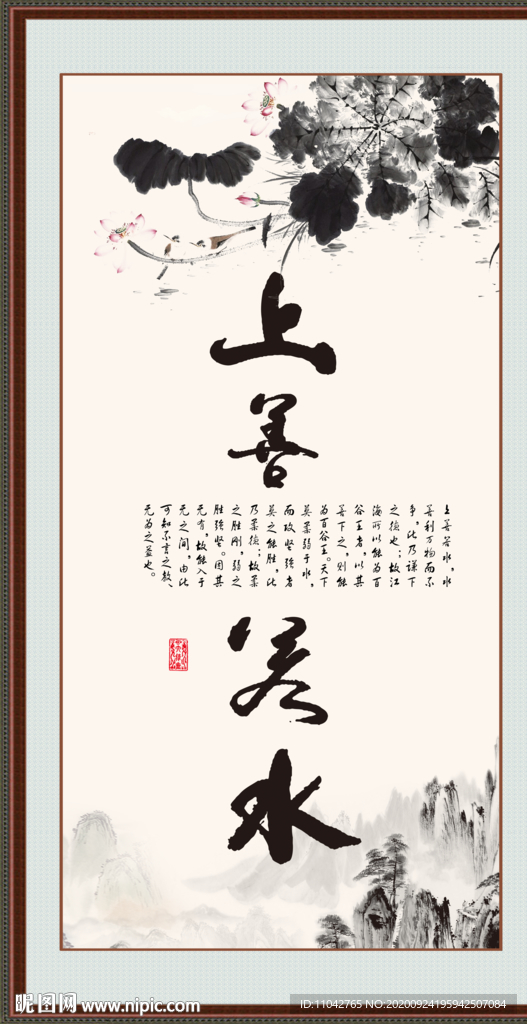 上善若水
上善若水,水
善利万物而不
争,此乃谦下
之德也;故江
海所以能为百
谷王者,以其
善下之,则能
为百谷王。天下
莫柔弱于水,
而攻坚强者
莫之能胜,此
乃柔德;故柔
之胜刚,弱之
胜强坚。因其
无有,故能入于
无之间,由此
可知不言之教、
无为之益也。
昵图网 www.nipic.com
ID:11042765 NO:20200924195942507084